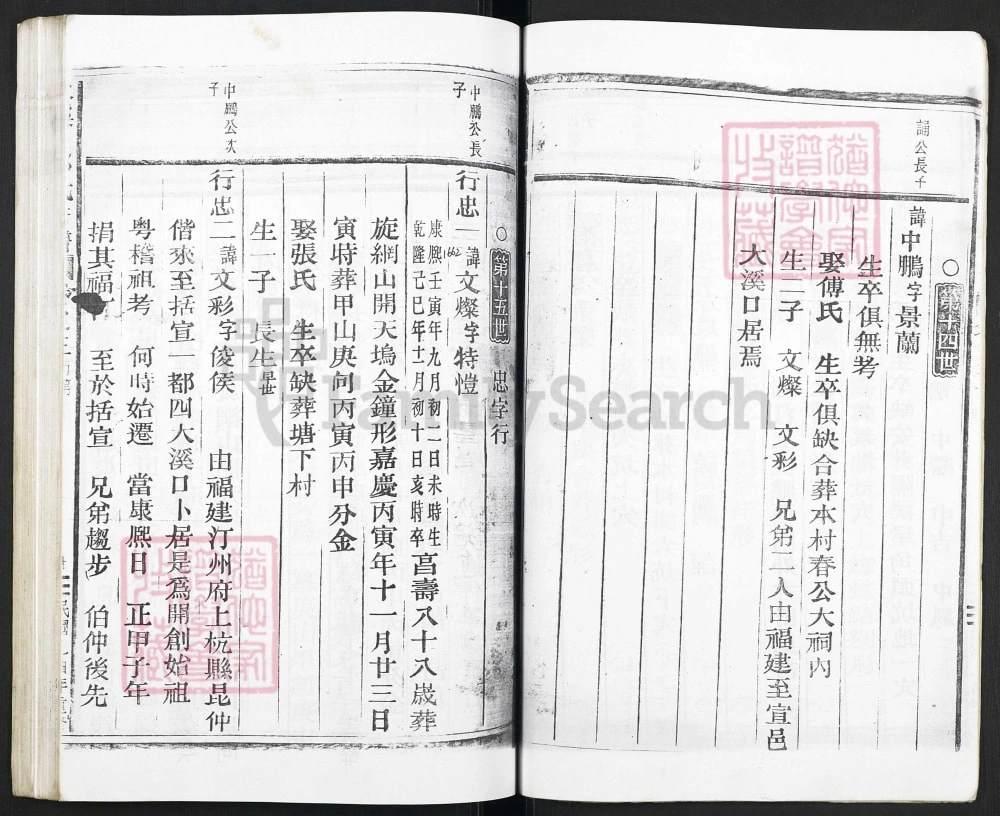 ○第十四世
誦公長子
諱中鵬字景蘭
生卒俱無考
娶傅氏 生卒俱缺合葬本村春公大祠內
生二子 文燦 文彩 兄弟二人由福建至宣邑
大溪口居焉
○第十五世 忠字行
中鵬公長子
行忠一諱文燦字特愷
1662
康熙壬寅年九月初二日未時生
乾隆己巳年十一月初十日亥時卒
享壽八十八歲葬
旋網山開天塢金鐘形嘉慶丙寅年十一月廿三日
寅時葬甲山庚向丙寅丙申分金
娶張氏 生卒缺葬塘下村
生一子 長生早世
中鵬公次子
行忠二諱文彩字俊侯 由福建汀州府上杭縣昆仲
偕來至括宣一都四大溪口卜居是為開創始祖
粵稽祖考 何時始遷 當康熙日 正甲子年
捐其福 至於括宣 兄弟趨步 伯仲後先
猶他家譜學會收藏
猶他家譜學會收藏
FamilySearch